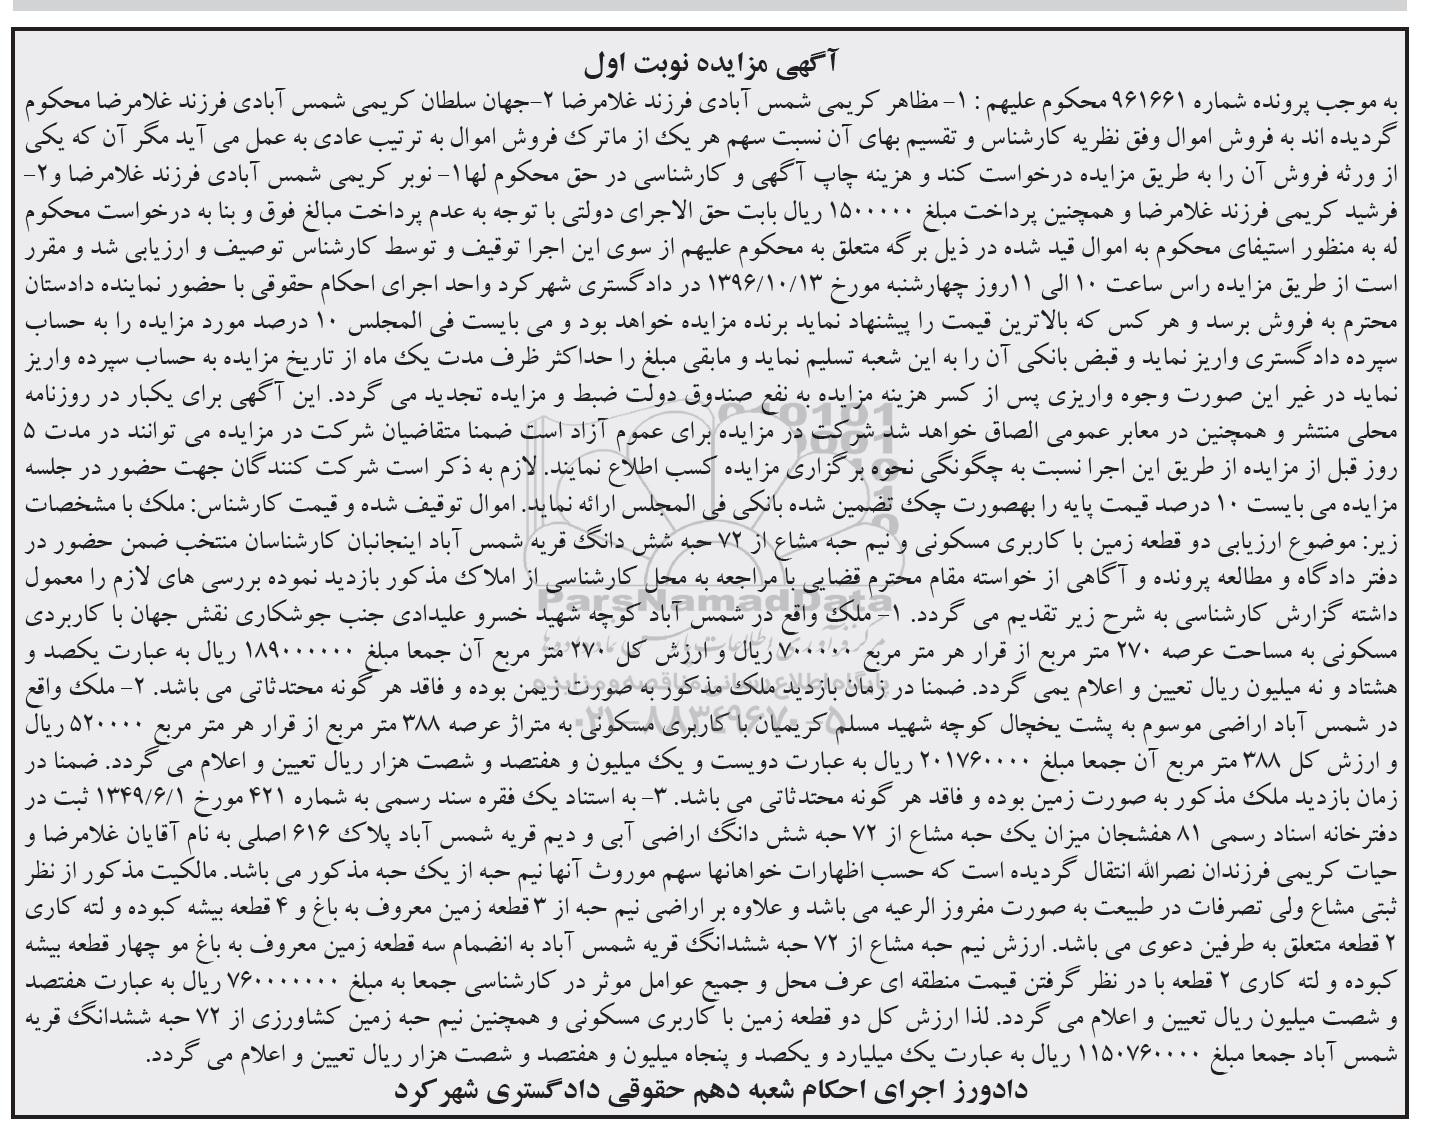 آگهی مزایده نوبت اول
به موجب پرونده شماره ۹۶۱۶۶۱ محکوم علیهم : ۱- مظاهر کریمی شمس آبادی فرزند غلامرضا ۲-جهان سلطان کریمی شمس آبادی فرزند غلامرضا محکوم
گردیده اند به فروش اموال وفق نظریه کارشناس و تقسیم بهای آن نسبت سهم هر یک از ماترک فروش اموال به ترتیب عادی به عمل می آید مگر آن که یکی
از ورثه فروش آن را به طریق مزایده درخواست کند و هزینه چاپ آگهی و کارشناسی در حق محکوم لها۱- نوبر کریمی شمس آبادی فرزند غلامرضا و۲-
فرشید کریمی فرزند غلامرضا و همچنین پرداخت مبلغ ۱۵۰۰۰۰۰ ریال بابت حق الاجرای دولتی با توجه به عدم پرداخت مبالغ فوق و بنا به درخواست محکوم
له به منظور استیفای محکوم به اموال قید شده در ذیل برگه متعلق به محکوم علیهم از سوی این اجرا توقیف و توسط کارشناس توصیف و ارزیابی شد و مقرر
است از طریق مزایده راس ساعت ۱۰ الی ۱۱روز چهارشنبه مورخ ۱۳۹۶/۱۰/۱۳ در دادگستری شهرکرد واحد اجرای احکام حقوقی با حضور نماینده دادستان
محترم به فروش برسد و هر کس که بالاترین قیمت را پیشنهاد نماید برنده مزایده خواهد بود و می بایست فی المجلس ۱۰ درصد مورد مزایده را به حساب
سپرده دادگستری واریز نماید و قبض بانکی آن را به این شعبه تسلیم نماید و مابقی مبلغ را حداکثر ظرف مدت یک ماه از تاریخ مزایده به حساب سپرده واریز
نماید در غیر این صورت وجوه واریزی پس از کسر هزینه مزایده به نفع صندوق دولت ضبط و مزایده تجدید می گردد. این آگهی برای یکبار در روزنامه
محلی منتشر و همچنین در معابر عمومی الصاق خواهد شد شرکت در مزایده برای عموم آزاد است ضمنا متقاضیان شرکت در مزایده می توانند در مدت ۵
روز قبل از مزایده از طریق این اجرا نسبت به چگونگی نحوه برگزاری مزایده کسب اطلاع نمایند. لازم به ذکر است شرکت کنندگان جهت حضور در جلسه
مزایده می بایست ۱۰ درصد قیمت پایه را بهصورت چک تضمین شده بانکی فی المجلس ارائه نماید. اموال توقیف شده و قیمت کارشناس: ملک با مشخصات
زیر: موضوع ارزیابی دو قطعه زمین با کاربری مسکونی و نیم حبه مشاع از ۷۲ حبه شش دانگ قریه شمس آباد اینجانبان کارشناسان منتخب ضمن حضور در
دفتر دادگاه و مطالعه پرونده و آگاهی از خواسته مقام محترم قضایی با مراجعه به محل کارشناسی از املاک مذکور بازدید نموده بررسی های لازم را معمول
داشته گزارش کارشناسی به شرح زیر تقدیم می گردد. ۱- ملک واقع در شمس آباد کوچه شهید خسرو علیدادی جنب جوشکاری نقش جهان با کاربردی
مسکونی به مساحت عرصه ۲۷۰ متر مربع از قرار هر متر مربع ۷۰۰۰۰۰ ریال و ارزش کل ۲۷۰ متر مربع آن جمعا مبلغ ۱۸۹۰۰۰۰۰۰ ریال به عبارت یکصد و
هشتاد و نه میلیون ریال تعیین و اعلام یمی گردد. ضمنا در زمان بازدید ملک مذکور به صورت زیمن بوده و فاقد هر گونه محتدثاتی می باشد. ۲- ملک واقع
در شمس آباد اراضی موسوم به پشت یخچال کوچه شهید مسلم کریمیان با کاربری مسکونی به متراژ عرصه ۳۸۸ متر مربع از قرار هر متر مربع ۵۲۰۰۰۰ ریال
و ارزش کل ۳۸۸ متر مربع آن جمعا مبلغ ۲۰۱۷۶۰۰۰۰ ریال به عبارت دویست و یک میلیون و هفتصد و شصت هزار ریال تعیین و اعلام می گردد. ضمنا در
زمان بازدید ملک مذکور به صورت زمین بوده و فاقد هر گونه محتدثاتی می باشد. ۳- به استناد یک فقره سند رسمی به شماره ۴۲۱ مورخ ۱۳۴۹/۶/۱ ثبت در
دفترخانه اسناد رسمی ۸۱ هفشجان میزان یک حبه مشاع از ۷۲ حبه شش دانگ اراضی آبی و دیم قریه شمس آباد پلاک ۶۱۶ اصلی به نام آقایان غلامرضا و
حیات کریمی فرزندان نصرالله انتقال گردیده است که حسب اظهارات خواهانها سهم موروث آنها نیم حبه از یک حبه مذکور می باشد. مالکیت مذکور از نظر
ثبتی مشاع ولی تصرفات در طبیعت به صورت مفروز الرعیه می باشد و علاوه بر اراضی نیم حبه از ۳ قطعه زمین معروف به باغ و ۴ قطعه بیشه کبوده و لته کاری
۲ قطعه متعلق به طرفین دعوی می باشد. ارزش نیم حبه مشاع از ۷۲ حبه ششدانگ قریه شمس آباد به انضمام سه قطعه زمین معروف به باغ مو چهار قطعه بیشه
کبوده و لته کاری ۲ قطعه با در نظر گرفتن قیمت منطقه ای عرف محل و جمیع عوامل موثر در کارشناسی جمعا به مبلغ ۷۶۰۰۰۰۰۰۰ ریال به عبارت هفتصد
و شصت میلیون ریال تعیین و اعلام می گردد. لذا ارزش کل دو قطعه زمین با کاربری مسکونی و همچنین نیم حبه زمین کشاورزی از ۷۲ حبه ششدانگ قریه
شمس آباد جمعا مبلغ ۱۱۵۰۷۶۰۰۰۰ ریال به عبارت یک میلیارد و یکصد و پنجاه میلیون و هفتصد و شصت هزار ریال تعیین و اعلام می گردد.
دادورز اجرای احکام شعبه دهم حقوقی دادگستری شهرکرد
ParsNamadData
پایگاه اطلاع رسانی مناقصه و مزایده
۰۲۱-۸۸۳۴۹۶۷۰-۵